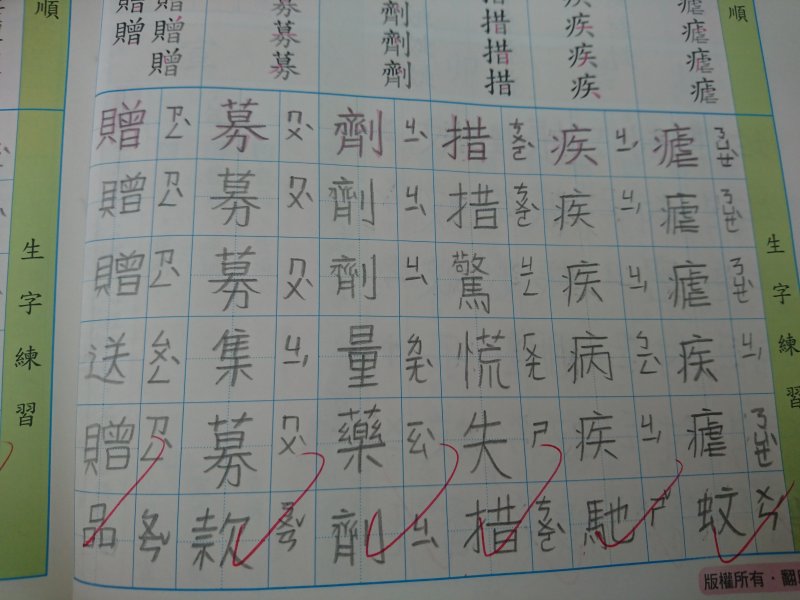 順
生字練習
瘧瘧瘧瘧
疾疾疾疾
措措措措
劑劑劑
募募募
贈贈贈
贈贈
瘧瘧瘧疾瘧蚊
ㄋㄩㄝˋ ㄋㄩㄝˋ ㄋㄩㄝˋ ㄐㄧˊ ㄋㄩㄝˋ ㄨㄣˊ
疾疾疾病疾馳
ㄐㄧˊ ㄐㄧˊ ㄐㄧˊ ㄅㄧㄥˋ ㄐㄧˊ ㄔˊ
措措驚慌失措
ㄘㄨㄛˋ ㄘㄨㄛˋ ㄐㄧㄥ ㄏㄨㄤ ㄕ ㄘㄨㄛˋ
劑劑劑量藥劑
ㄐㄧˋ ㄐㄧˋ ㄐㄧˋ ㄌㄧㄤˋ ㄧㄠˋ ㄐㄧˋ
募募募集募款
ㄇㄨˋ ㄇㄨˋ ㄇㄨˋ ㄐㄧˊ ㄇㄨˋ ㄎㄨㄢˇ
贈贈贈送贈品
ㄗㄥˋ ㄗㄥˋ ㄗㄥˋ ㄙㄨㄥˋ ㄗㄥˋ ㄆㄧㄣˇ
版權所有·翻
順
生字練習